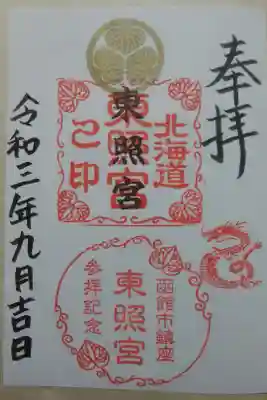 奉拝
東照宮
北海道
東照宮
之印
函館市鎮座
東照宮
参拝記念
令和三年九月吉日